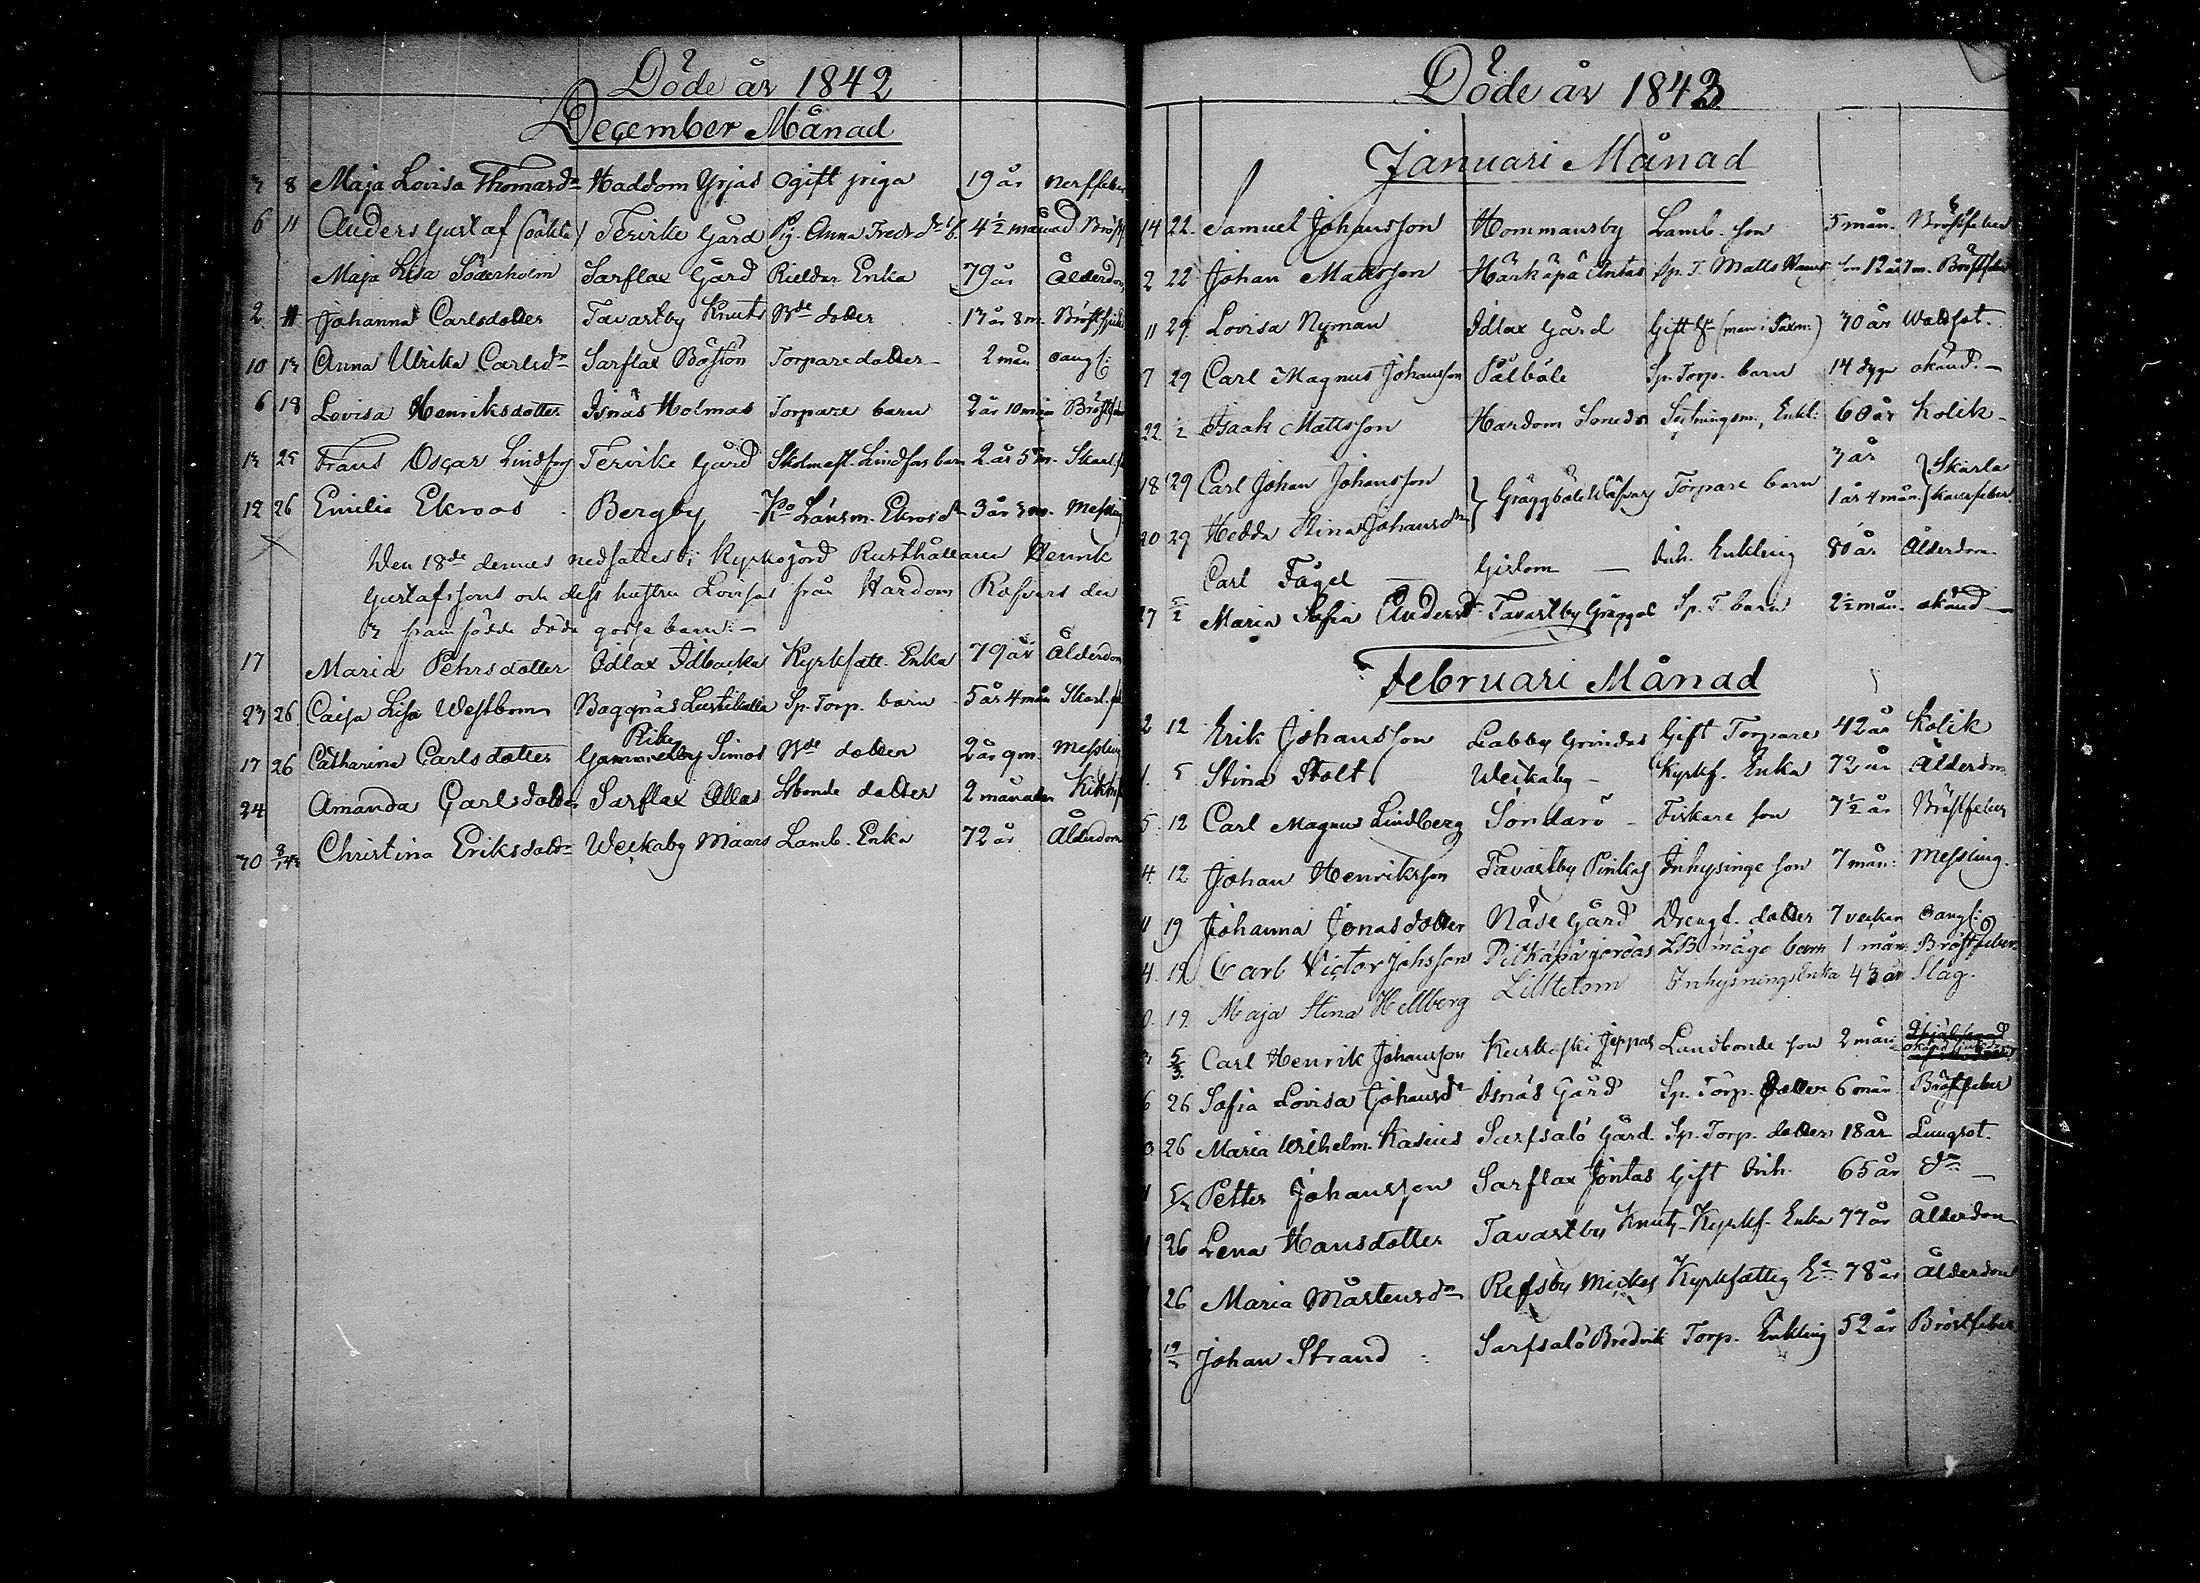 Döde år 1842
December Månad
3 8 Maja Lovisa Thomasdr Haddom Yrjas Ogift piga 19 år Nerffeber
6 11 Anders Gustaf (oäkta) Tervike Gård Pig. Anna Fredrdr 4 1/2 månad
Maja Lisa Söderholm Sarflax Gård Enka 79 år Ålderdom
2 11 Johanna Carlsdotter Tavastby Knuts Bde dotter 13 år 8 m.
10 13 Anna Ulrika Carlsdr Sarflax Torpare dotter 2 mån
6 18 Lovisa Henriksdotter Isnäs Holmas Torpare barn 2 år 10 mån
13 25 Frans Oscar Lindfors Tervike Gård Skolmest. Lindfors barn 2 år 5 m.
12 26 Emilia Ekroos Bergby Länsm. Ekroos dr 3 år 3 m. Messling
Den 18de dennes nedsattes i Kyrkojord Rusthållaren Henrik
Gustafssons och dess hustru Lovisas från Hardom Rafvars den
3 framfödde döde gosse barn.
17 Maria Pehrsdotter Idlax Idbacka Kyrkfatt. Enka 79 år Ålderdom
23 26 Caisa Lisa Westbom Baggnäs Sp. Torp. barn 5 år 4 mån
17 26 Catharina Carlsdotter Gammelby Rike Simos Bde dotter 2 år 9 m. Messling
24 Amanda Carlsdotter Sarflax Allas Lbonde dotter 2 månader
30 8/1 43 Christina Eriksdotr Weckaby Maars Lamb. Enka 72 år Ålderdom
Döde år 1843
Januari Månad
14 22. Samuel Johansson Hommansby Lamb. son 5 mån. Bröstfeber
2 22 Johan Mattsson Härkäpä Antas Sp. T. Matts son 12 år 7 m. Bröstfeber
11 29. Lovisa Nyman Idlax Gård Gift 30 år
7 29 Carl Magnus Johansson Pålböle Sp. Torp. barn 14 dygn okänd
22 Isaak Mattsson Hardom Enkl. 60 år Kolik
18 29 Carl Johan Johansson } Gräggböle Torpare barn 3 år } Skarla
20 29 Hedda Stina Johansdr 1 år 4 mån. kansfeber
Carl Fagel Gislom Inh. Enkling 80 år Ålderdom
27 5/2 Maria Sofia Andersdr Tavastby Sp. T. barn 2 1/2 mån. okänd
Februari Månad
2 12 Erik Johansson Labby Grindas Gift Torpare 42 år Kolik
1. 5 Stina Stolt Weckaby Kyrkf. Enka 72 år Ålderdom
5 12 Carl Magnus Lindberg Söndarö Fiskare son 7 1/2 år Bröstfeber
4. 12 Johan Henriksson Tavastby Pinkas Inhysinge son 7 mån. Messling.
11 19 Johanna Jonasdotter Näse Gård Drengf. dotter 7 veckor
4. 19 Carl Victor Johsson Pitkäpä LB mågs barn 1 mån. Bröstfeber
0. 19. Maja Stina Hellberg Lilltetom Inhysnings Enka 43 år Slag.
5/3 Carl Henrik Johansson Kuskoski Jeppas Landbonde son 2 mån
6 26 Sofia Lovisa Johansdr Isnäs Gård Sp. Torp. Dotter 6 mån Bröstfeber
26 Maria Wilhelm. Kasius Sarfsalö Gård Sp. Torp. dotter 18 år Lungsot.
5/3 Petter Johansson Sarflax Jöntas Gift Inh. 65 år do
26 Lena Hansdotter Tavastby Knuts Kyrkf. Enka 77 år Ålderdom
26 Maria Mårtensdr Refsby Mickes Kyrkfattig Ea 78 år Ålderdom
Johan Strand Sarfsalö Bredvik Torp. Enkling 52 år Bröstfeber